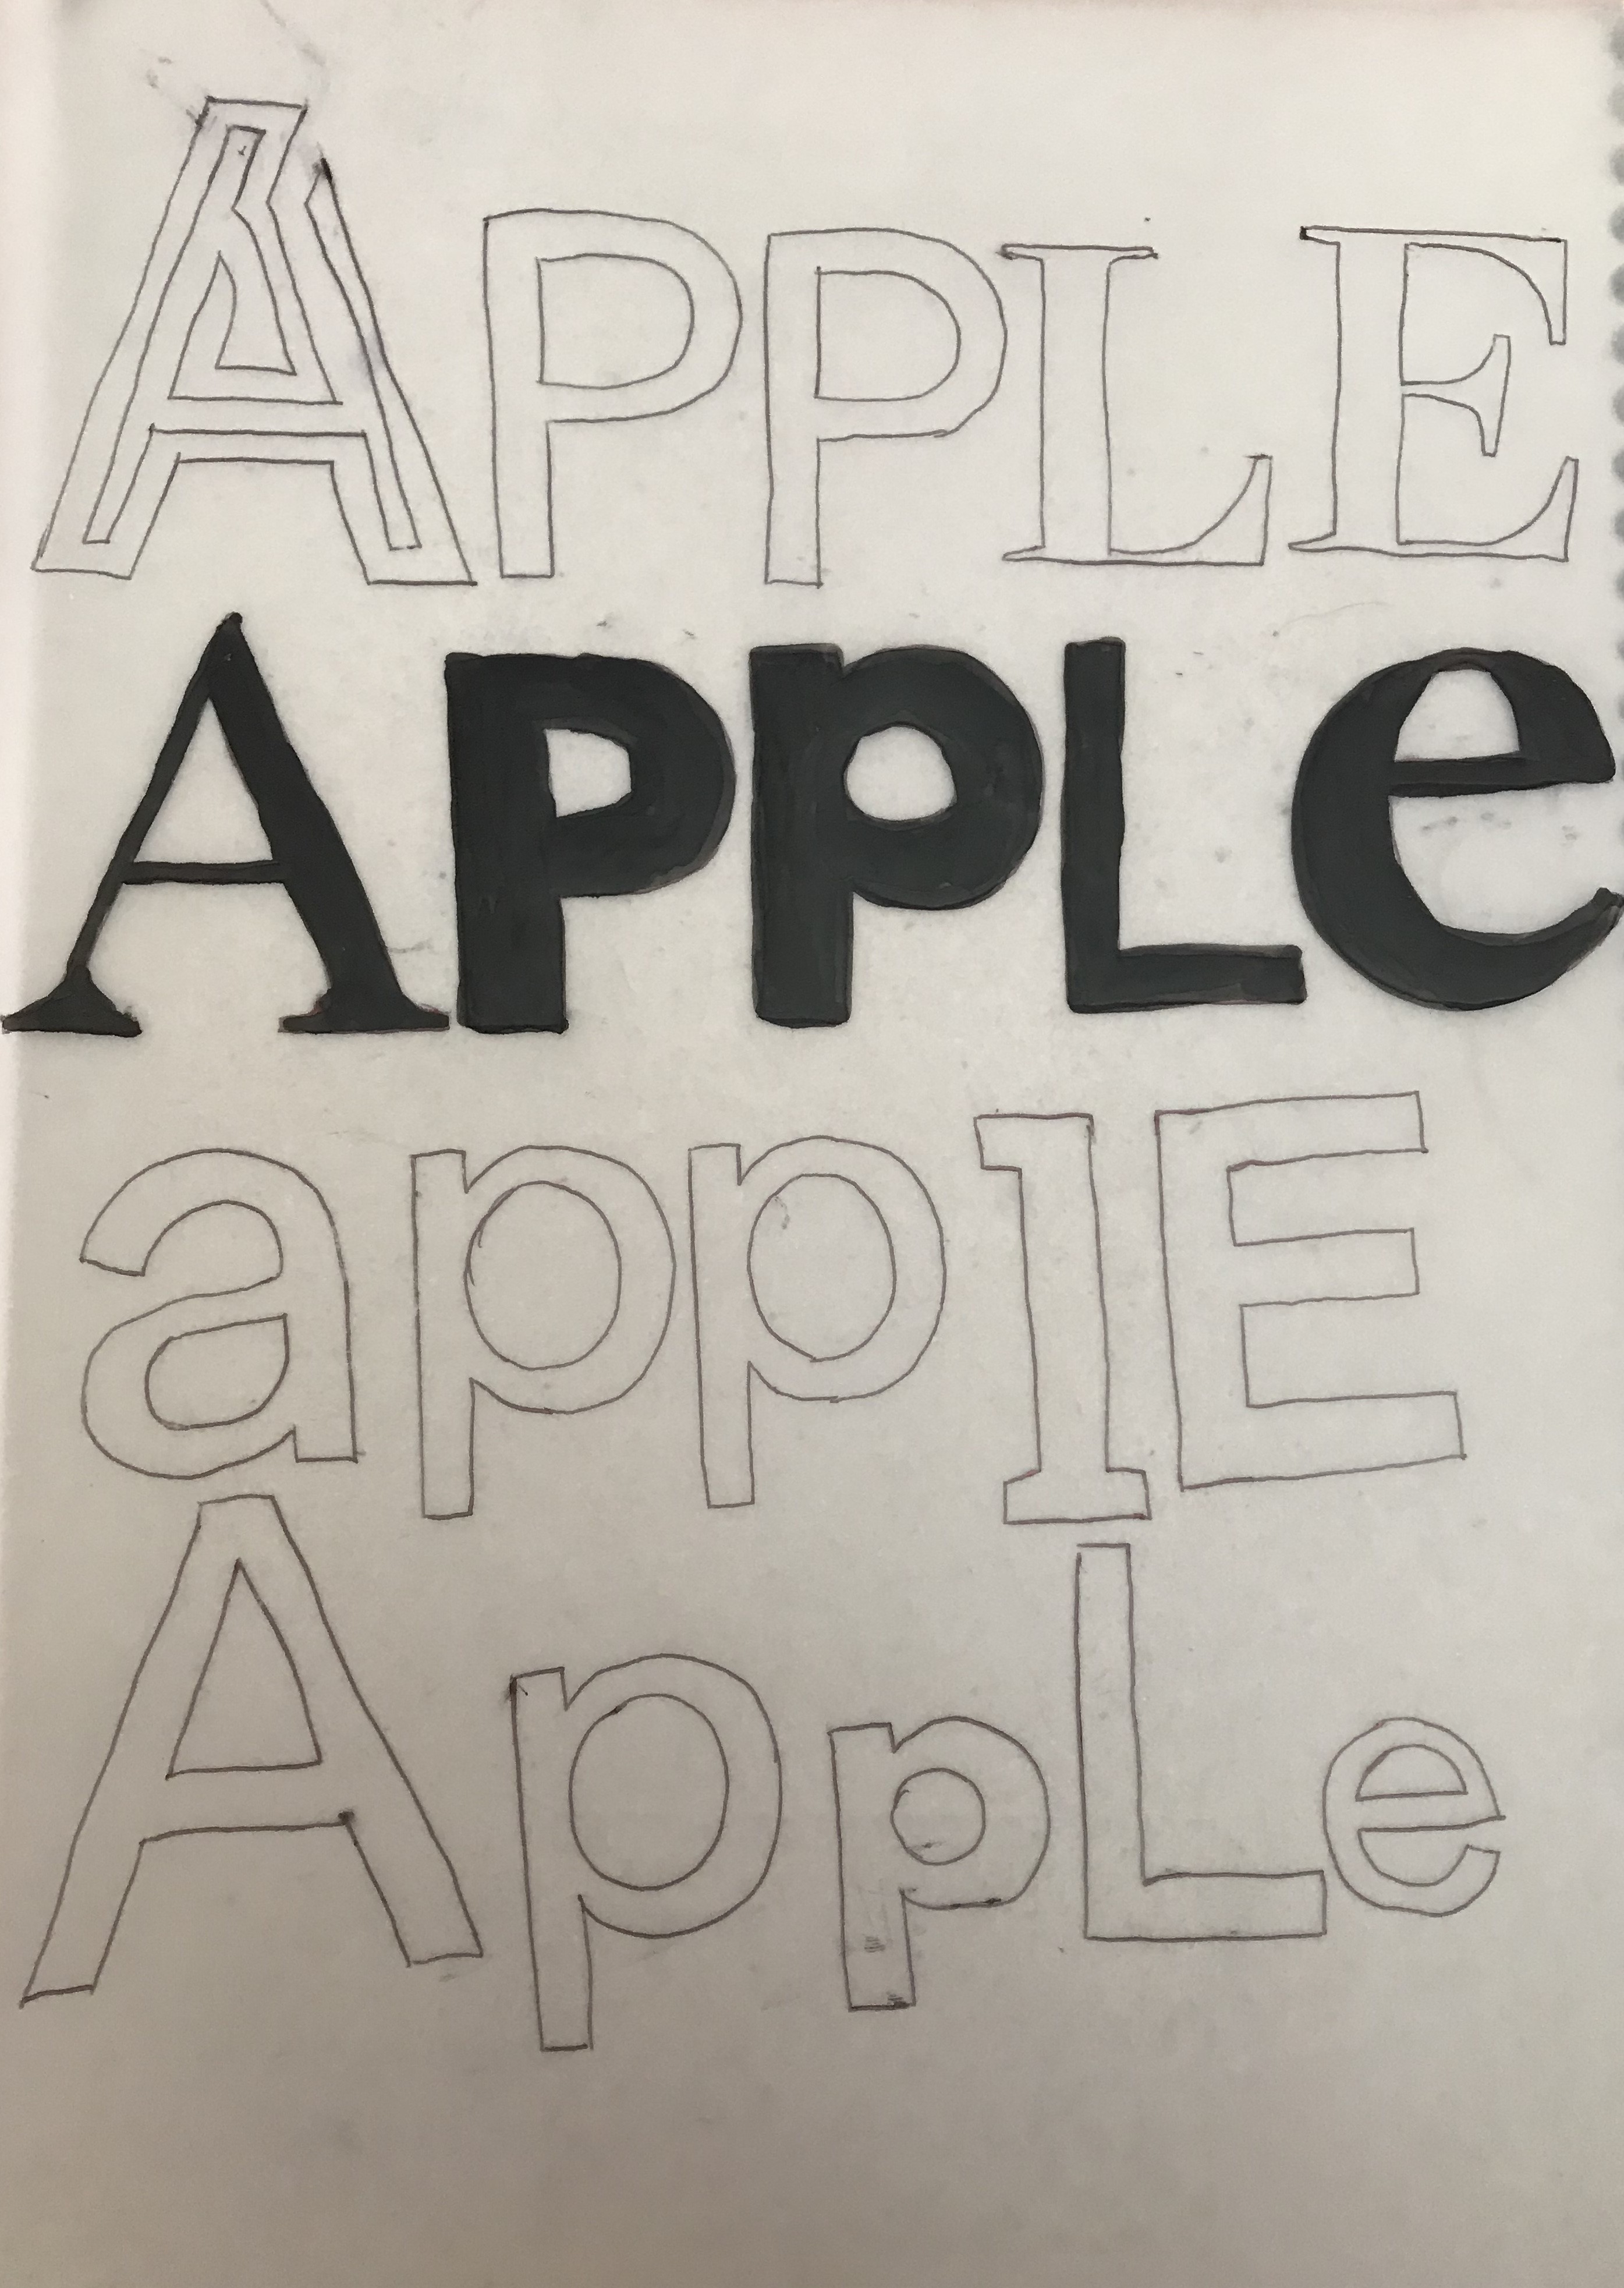 APPLE
APpLe
appIE
AppLe